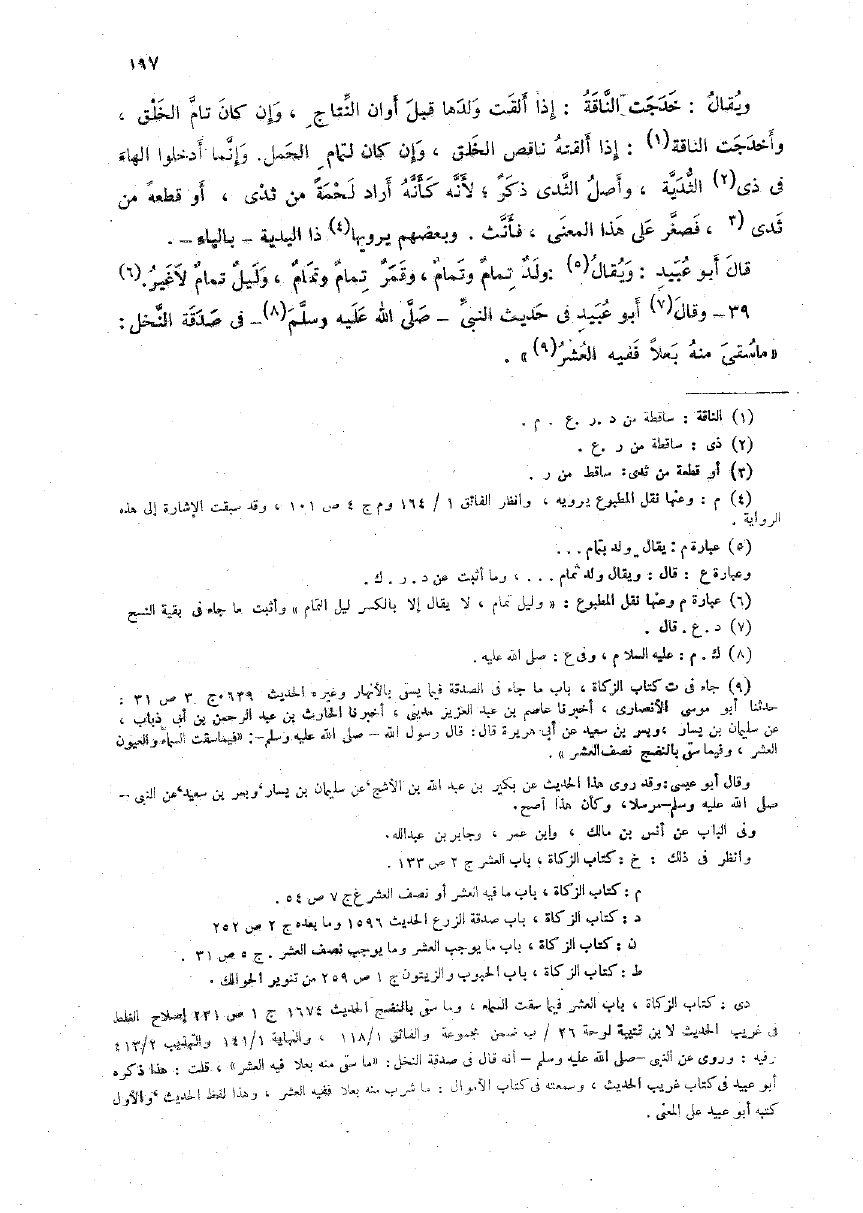 ١٩٧
ويُقالُ : خَدَجَت النَّاقَةُ : إذا ألقَت وَلدَها قبلَ أوان النِّتاجِ ، وَإن كانَ تامَّ الخَلْق ،
وأَخدَجَت الناقة(١) : إذا ألقتهُ ناقص الخَلق ، وَإن كان لتمام الحَمل. وَإنَّما أدخلوا الهاءَ
فى ذى(٢) الثُّدَيَّة ، وأصلُ الثَّدى ذكَرٌ ؛ لأنَّه كَأنَّهُ أراد لَحْمَةً من ثَدْى ، أو قطعةً من
ثَدى (٣ ، فَصغَّر عَلى هَذا المعنَى ، فأنَّث . وبعضهم يرويها(٤) ذا اليدية – بالياء –.
قالَ أبو عُبَيدٍ : وَيُقالُ(٥) :ولَدٌ تِمامٌ وتَمامٌ ، وقَمَرٌ تِمامٌ وتَمَامٌ ، وَلَيلُ تمامٌ لاَغَيرُ.(٦)
٣٩ – وقالَ(٧) أبو عُبَيدٍ فى حَديث النبىِّ – صَلَّى الله عَلَيه وسلَّمَ(٨)– فى صَدَقَة النَّخل :
«ماسُقىَ منهُ بَعلاً فَفيه العُشرُ(٩)» .
(١) الناقة : ساقطة من د .ر .ع . م .
(٢) ذى : ساقطة من ر .ع .
(٣) أو قطعة من ثدى: ساقط من ر .
(٤) م : وعنها نقل المطبوع يرويه ، وانظر الفائق ١ / ١٦٤ وم ج ٤ ص ١٠١ ، وقد سبقت الإشارة إلى هذه
الرواية .
(٥) عبارة م : يقال ولد بتمام ...
وعبارة ع : قال : ويقال ولد تمام ... ، وما أثبت عن د . ر . ك .
(٦) عبارة م وعنها نقل المطبوع : « وليل تمام ، لا يقال إلا بالكسر ليل التمام » وأثبت ما جاء فى بقية النسخ
(٧) د . ع . قال .
(٨) ك . م : عليه السلام ، وفى ع : صلى الله عليه .
(٩) جاء فى ت كتاب الزكاة ، باب ما جاء فى الصدقة فيما يسقى بالأنهار وغيره الحديث ٦٣٩ج ٣ ص ٣١ :
حدثنا أبو موسى الأنصارى ، أخبرنا عاصم بن عبد العزيز مدينى ، أخبرنا الحارث بن عبد الرحمن بن أبى ذباب ،
عن سليمان بن يسار ،وبسر بن سعيد عن أبى هريرة قال: قال رسول الله – صلى الله عليه وسلم–: «فيماسقت السماء والعيون
العشر ، وفيما سقى بالنضج نصف العشر » .
وقال أبو عيسى :وقد روى هذا الحديث عن بكير بن عبد الله بن الأشج ،عن سليمان بن يسار ،وبسر بن سعيد ،عن النبى –
صلى الله عليه وسلم–مرسلا، وكأن هذا أصح.
وفى الباب عن أنس بن مالك ، وابن عمر ، وجابر بن عبدالله.
وانظر فى ذلك : خ : كتاب الزكاة ، باب العشر ج ٢ ص ١٣٣ .
م : كتاب الزكاة ، باب ما فيه العشر أو نصف العشر ج ٧ ص ٥٤ .
د : كتاب الزكاة ، باب صدقة الزرع الحديث ١٥٩٦ وما بعده ج ٢ ص ٢٥٢
ن : كتاب الزكاة ، باب ما يوجب العشر وما يوجب نصف العشر . ج ٥ ص ٣١ .
ط : كتاب الزكاة ، باب الحبوب والزيتون ج ١ ص ٢٥٩ من تنوير الحوالك .
دى : كتاب الزكاة ، باب العشر فيما سقت السماء ، وما سقى بالنضج الحديث ١٦٧٤ ج ١ ص ٢٣١ إصلاح الغلط
فى غريب الحديث لابن قتيبة لوحة ٢٦ / ب ضمن مجموعة والفائق ١١٨/١ ، والنهاية ١٤١/١ والتهذيب ٤١٣/٢
وفيه : وروى عن النبى –صلى الله عليه وسلم – أنه قال فى صدقة النخل: «ما سقى منه بعلا فيه العشر» ، قلت : هذا ذكره
أبو عبيد فى كتاب غريب الحديث ، وسمعته فى كتاب الأموال : ما شرب منه بعلا ففيه العشر ، وهذا لفظ الحديث ،والأول
كتبه أبو عبيد على المعنى .